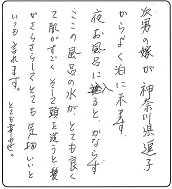 次男の嫁が神奈川県逗子
からよく泊に来ます。
夜お風呂に入ると、かならず
ここの風呂の水が、とても良く
て肌がすごく そして頭を洗うと髪
がさらさらしてとても気持いいと
いつも言われます。
とても幸せ。